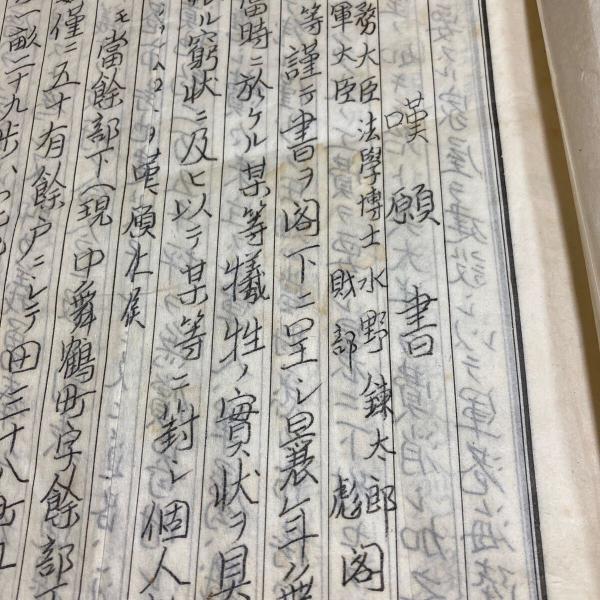 嘆願書
務大臣法學博士水野鍊太郎
軍大臣 財部 彪 閣
等謹テ書ヲ閣下ニ呈シ曩年
當時ニ於ケル某等犧牲ノ實狀ヲ具
ル窮状ニ及ヒ以テ某等ニ對シ個人
ヲ嘆願仕候
モ當餘部下(現中舞鶴町字餘部下
僅ニ五十有餘戸ニシテ田三十八町
畝二十九歩